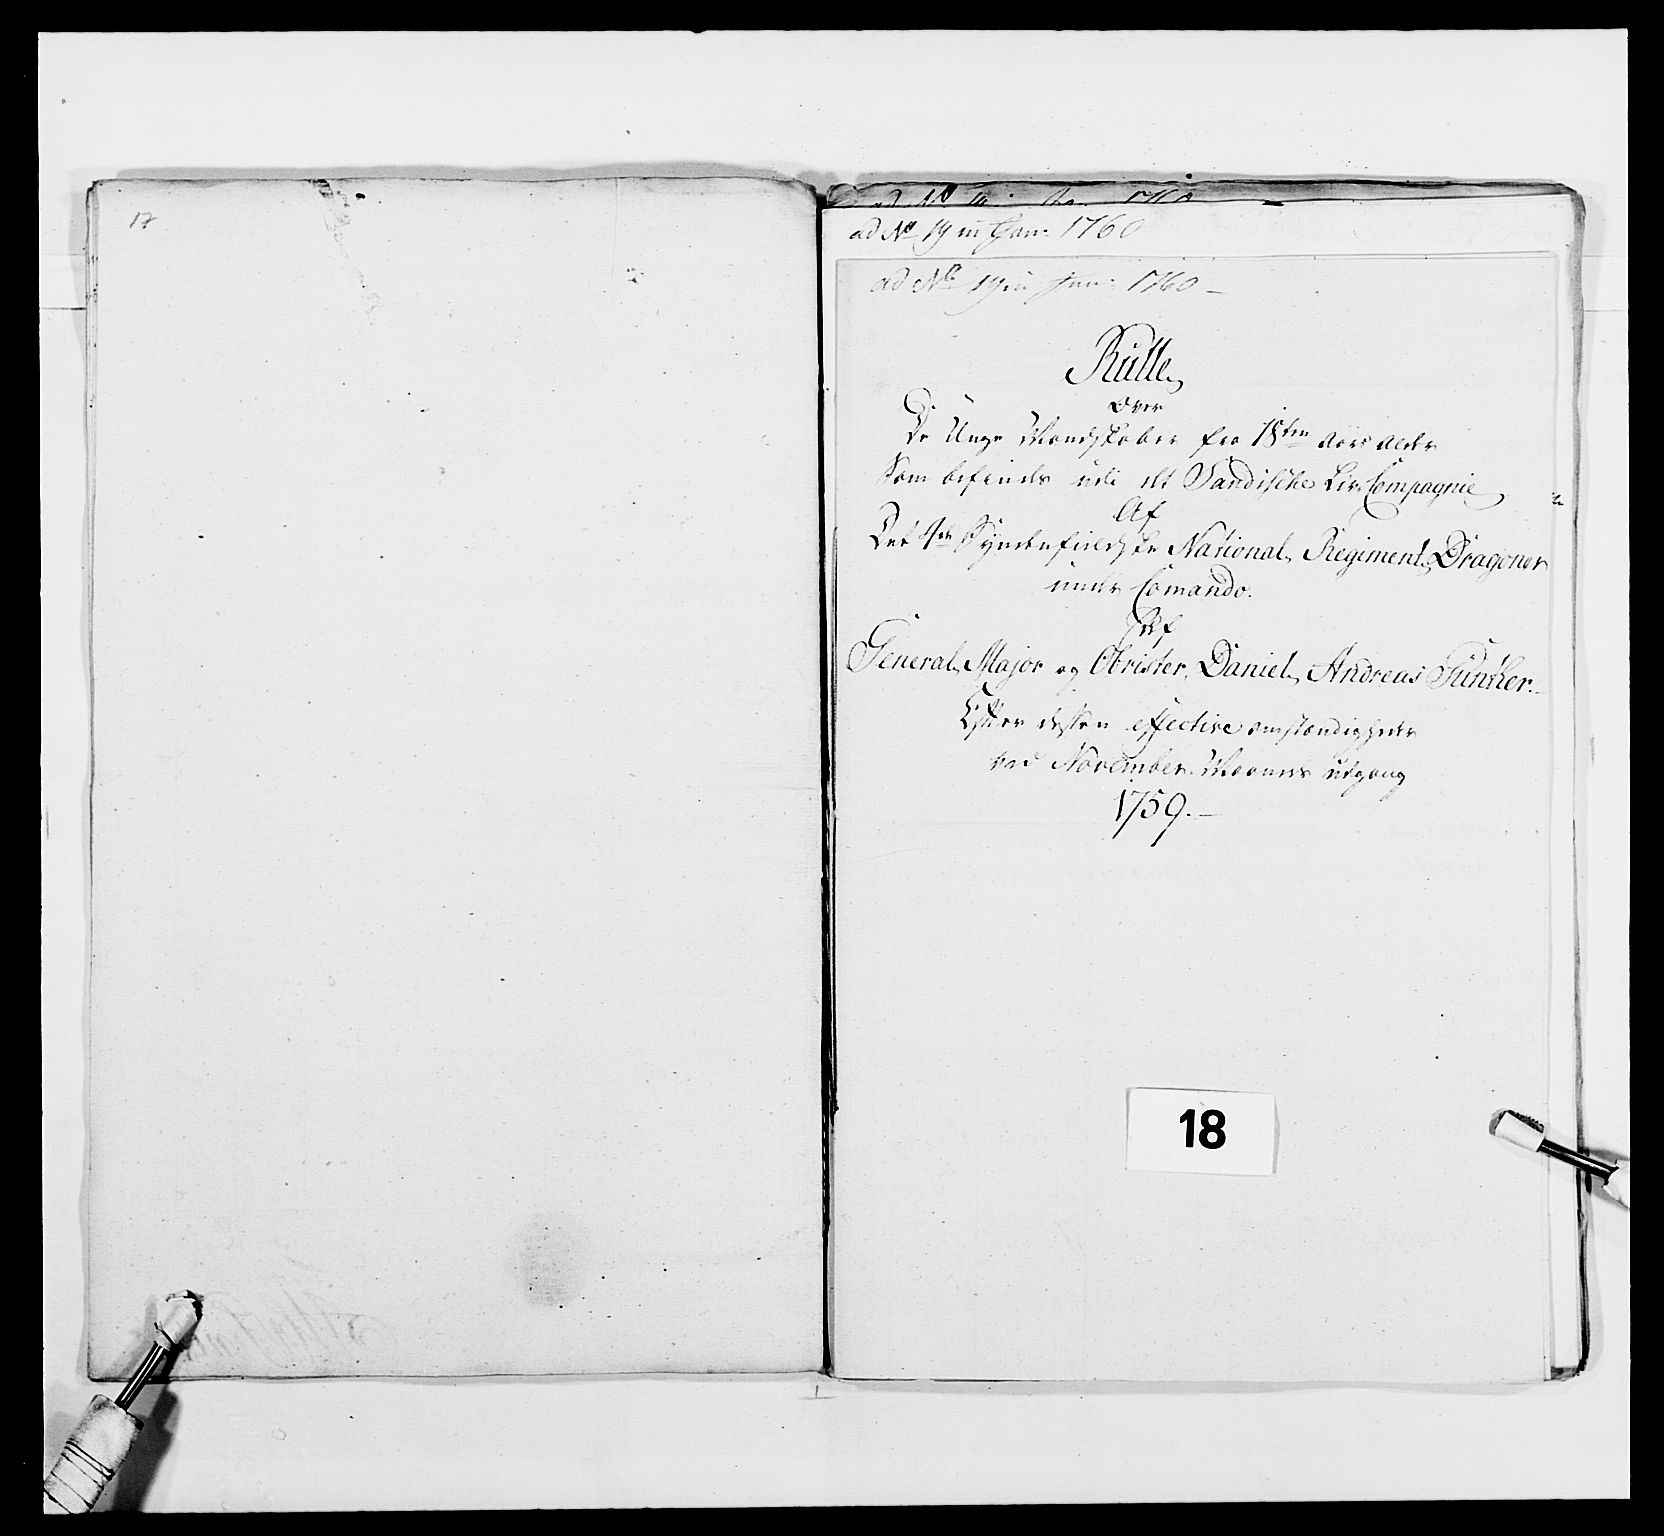 17
ad No 19 in Jan: 1760
ad No 19 in Jan: 1760
Rulle
over
De Unge Mandskaber fra 18ten Aars alder
Som befindes udi det Sandiske Liv Compagnie
Af
Det 1te Syndenfieldske National Regiment Dragoner
under Comando.
Af
General Major og Obrister, Daniel Andreas Fünker
Efter dessen effective omstændigheder
ved November Maaneds udgang
1759.
18